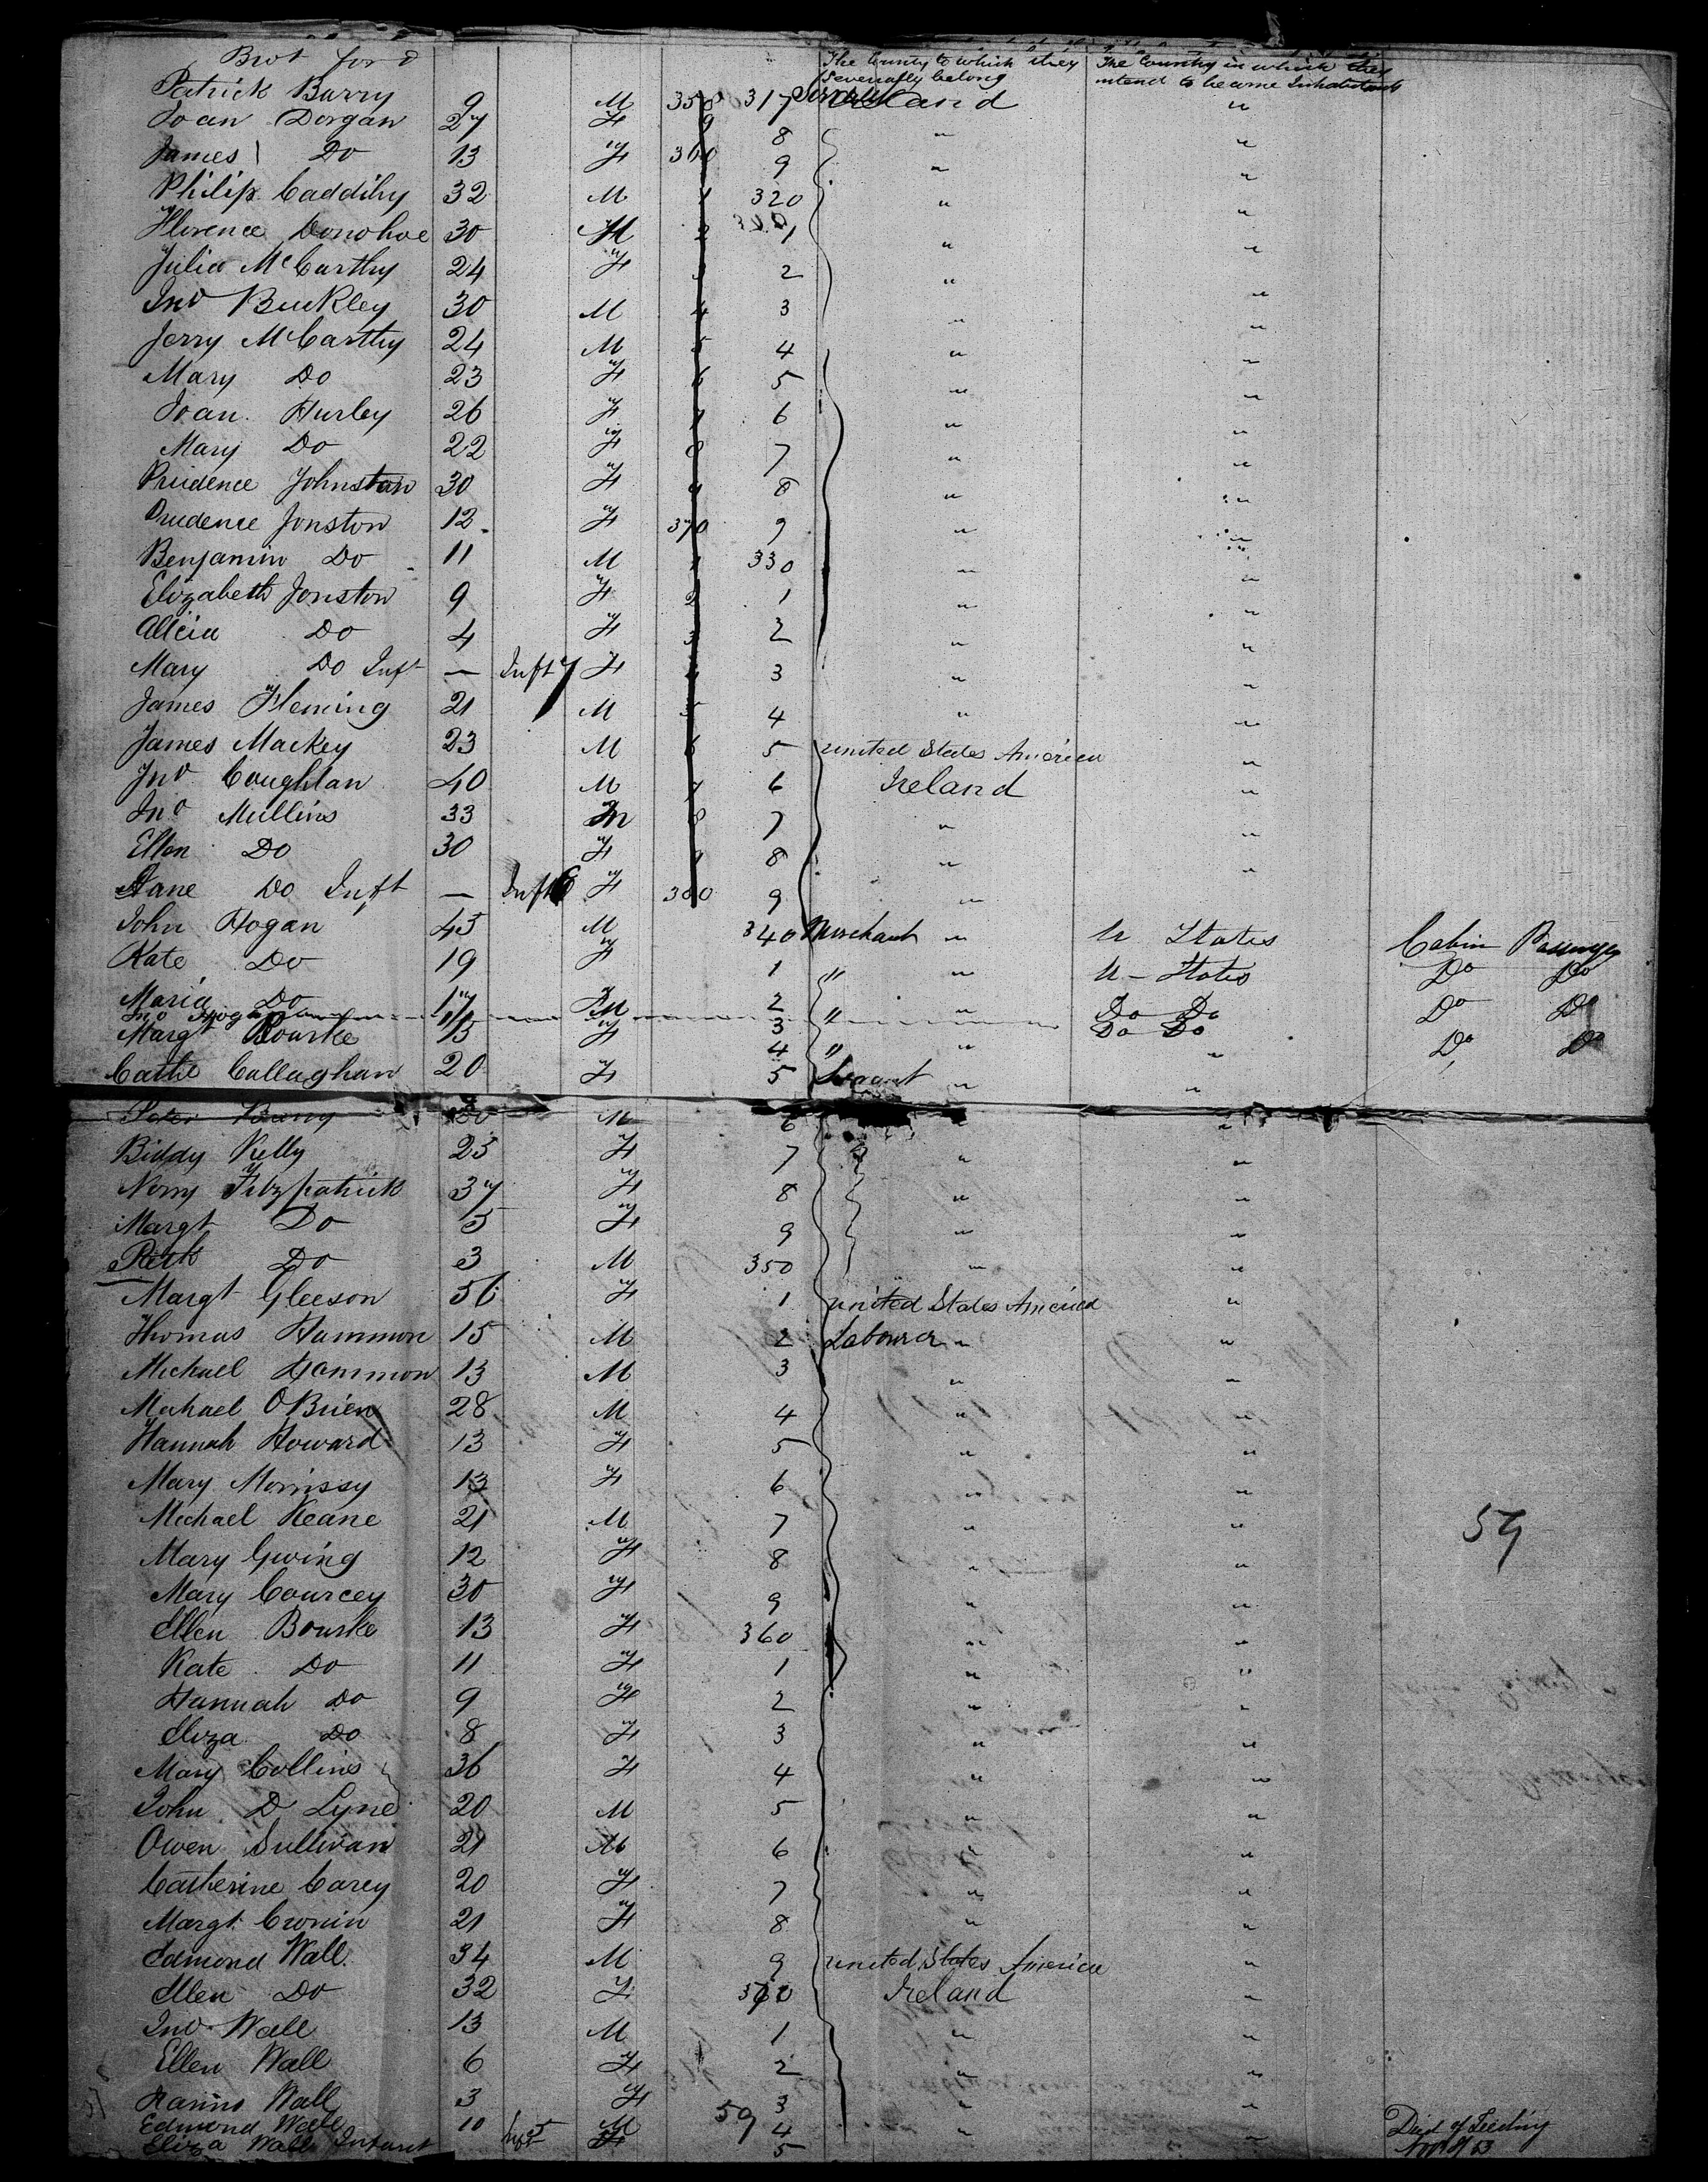 Brot for d
The County to which they severally belong The Country in which they intend to become Inhabitants
Patrick Barry 9 M 358 317 Ireland "
Joan Dorgan 27 F 9 8 " "
James Do 13 F 360 9 " "
Philip Caddihy 32 M 1 320 " "
Florence Donohoe 30 M 2 1 " "
Julia McCarthy 24 F 3 2 " "
Jno Buckley 30 M 4 3 " "
Jerry McCarthy 24 M 5 4 " "
Mary Do 23 F 6 5 " "
Joan Hurley 26 F 7 6 " "
Mary Do 22 F 8 7 " "
Prudence Johnston 30 F 9 8 " "
Prudence Jonston 12 F 370 9 " "
Benjamin Do 11 M 1 330 " "
Elizabeth Jonston 9 F 2 1 " "
Alicia Do 4 F 3 2 " "
Mary Do Inft — Inft 7 F 4 3 " "
James Fleming 21 M 5 4 " "
James Mackey 23 M 6 5 United States America "
Jno Coughlan 40 M 7 6 Ireland "
Jno Mullins 33 M 8 7 " "
Ellen Do 30 F 9 8 " "
Jane Do Inft — Inft 8 F 380 9 "
John Hogan 45 M 340 Merchant " U States Cabin Passenger
Kate Do 19 F 1 " " U - States Do Do
Maria Do 17 F 2 " " Do Do Do Do
Jno Hogan 11 M 3 Do Do
Margt Bourke 13 F 4 " " " Do Do
Cathe Callaghan 20 F 5 Servant " "
Peter Barry 20 M 6 " "
Biddy Kelly 23 F 7 " "
Norry Fitzpatrick 37 F 8 " "
Margt Do 5 F 9 " "
Patk Do 3 M 350 " "
Margt Gleeson 56 F 1 United States America "
Thomas Hammon 15 M 2 Labourer " "
Michael Hammon 13 M 3 " "
Michael OBrien 28 M 4 " "
Hannah Howard 13 F 5 " "
Mary Morrissy 13 F 6 " "
Michael Keane 21 M 7 " " 59
Mary Gwing 12 F 8 " "
Mary Courcey 30 F 9 " "
Ellen Bourke 13 F 360 " "
Kate Do 11 F 1 " "
Hannah Do 9 F 2 " "
Eliza Do 8 F 3 " "
Mary Collins 36 F 4 " "
John D Lyne 20 M 5 " "
Owen Sullivan 21 M 6 " "
Catherine Carey 20 F 7 " "
Margt Cronin 21 F 8 " "
Edmond Wall 34 M 9 United States America "
Ellen Do 32 F 370 Ireland "
Jno Wall 13 M 1 " "
Ellen Wall 6 F 2 " "
Wall 3 F 3 " "
Edmond Wall 10 M 59 4 " "
Eliza Wall Infant Inft F 5 Died of